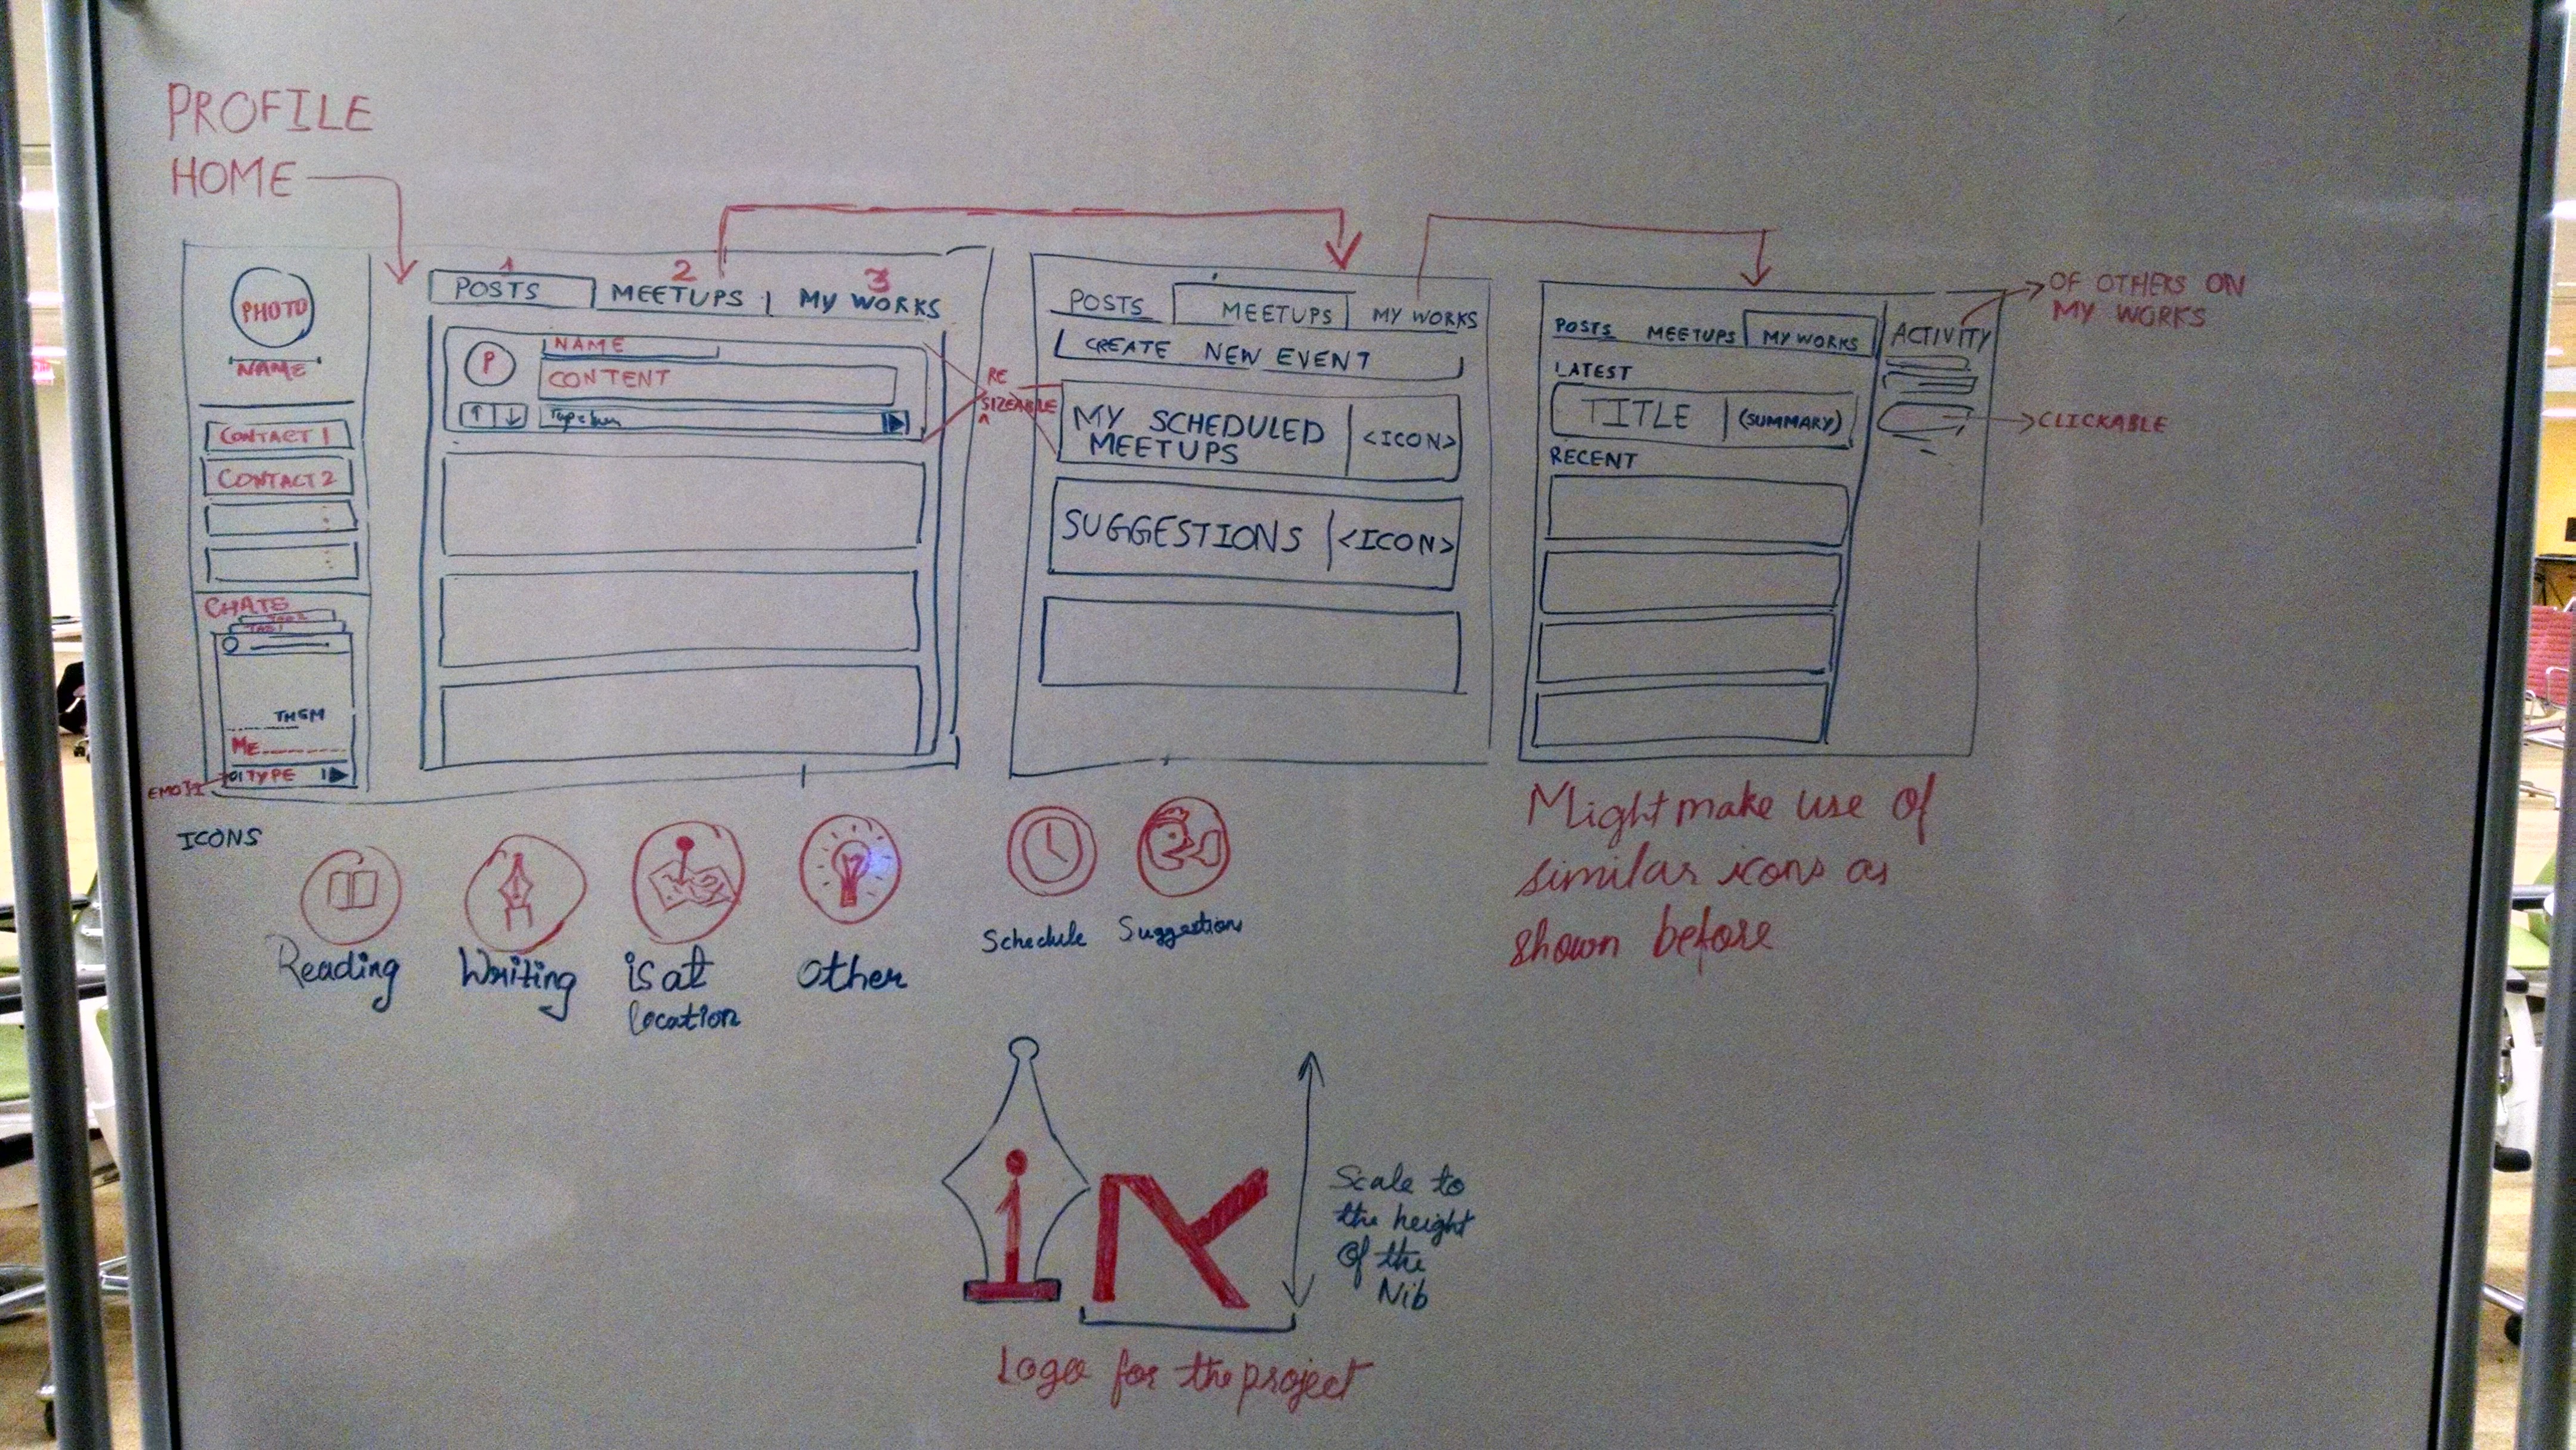 PROFILE
HOME
PHOTO
NAME
CONTACT 1
CONTACT 2
CHATS
TAB 2
TAB 1
THEM
ME
TYPE
EMOJI
1
2
3
POSTS
MEETUPS
MY WORKS
P
NAME
CONTENT
RE
SIZEABLE
POSTS
MEETUPS
MY WORKS
CREATE NEW EVENT
MY SCHEDULED
MEETUPS
<ICON>
SUGGESTIONS
<ICON>
POSTS
MEETUPS
MY WORKS
ACTIVITY
OF OTHERS ON
MY WORKS
LATEST
TITLE
(SUMMARY)
CLICKABLE
RECENT
ICONS
Reading
Writing
is at
location
Other
Schedule
Suggestions
Might make use of
similar icons as
shown before
Scale to
the height
of the
Nib
Logo for the project